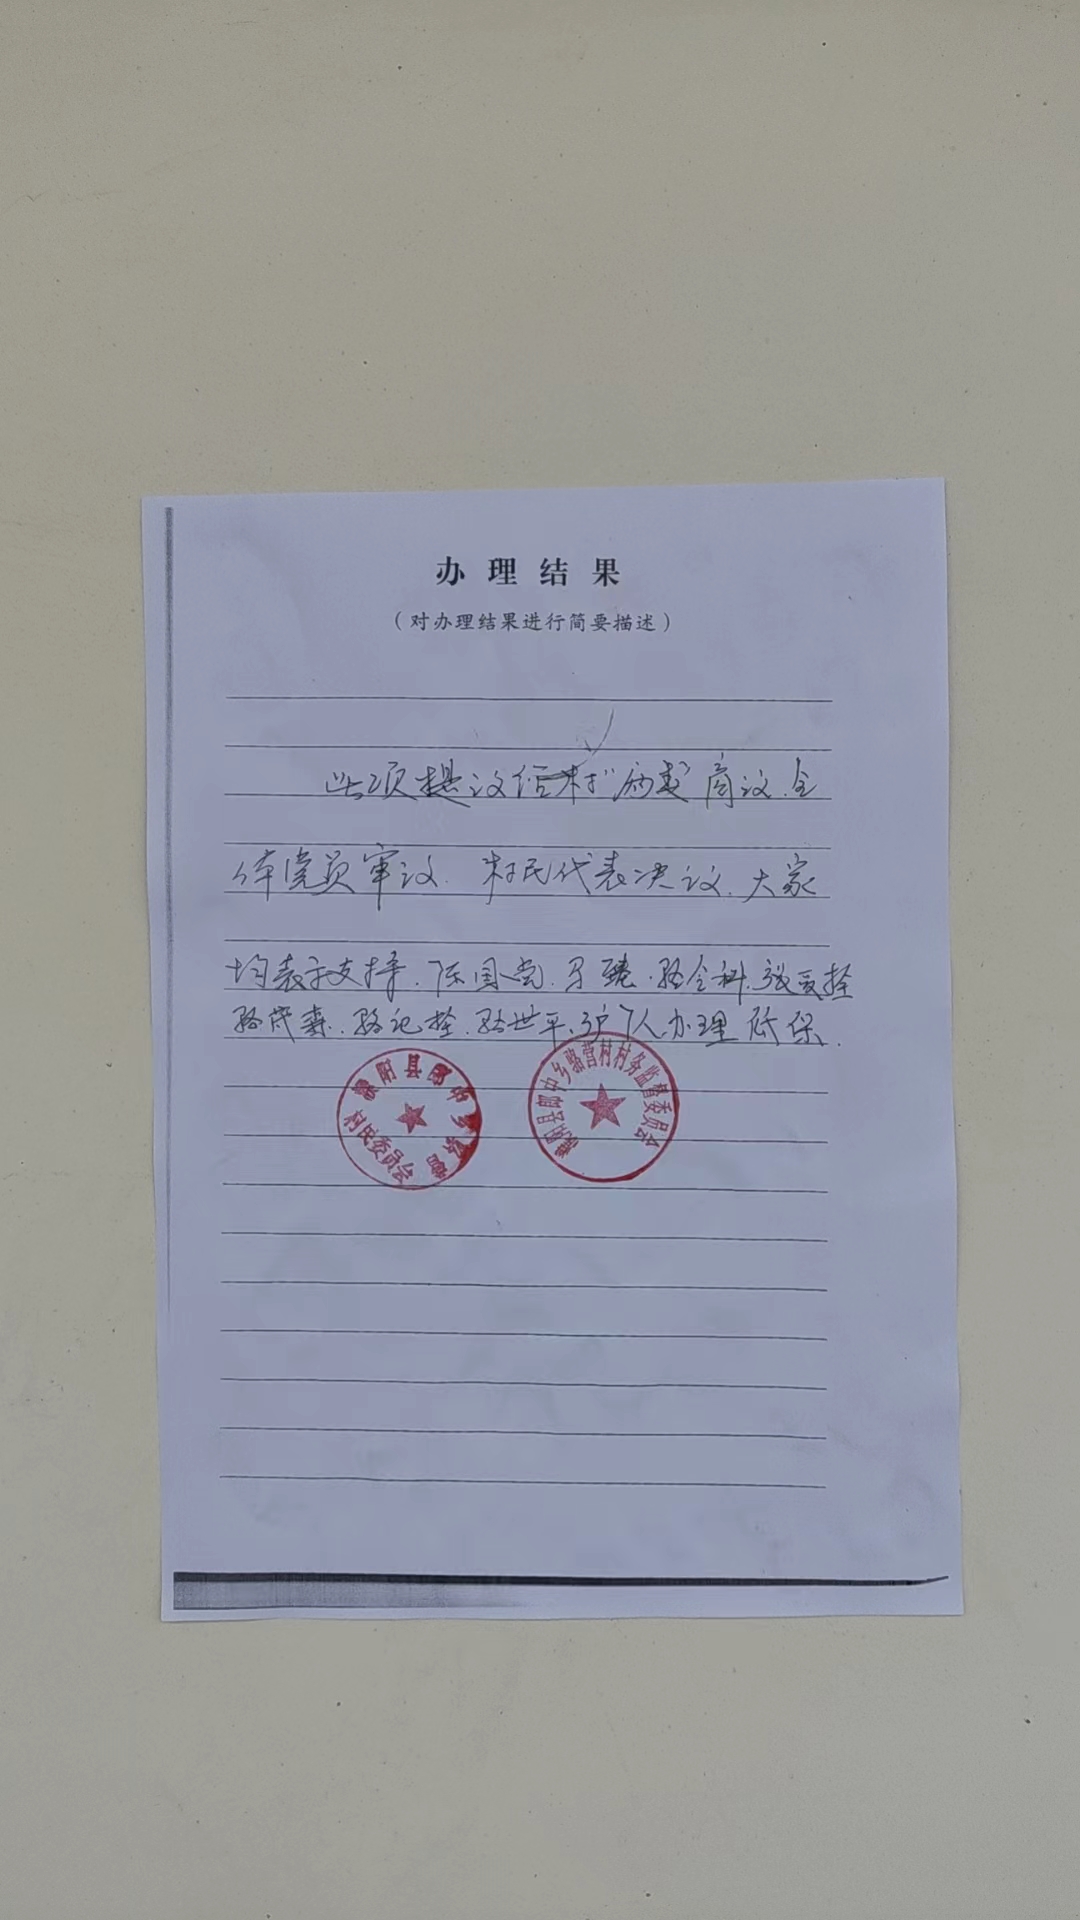 办理结果
（对办理结果进行简要描述）
此项提议经村“两委”商议、全
体党员审议、村民代表决议、大家
均表示支持、陈国党、骆全科、张爱拴
骆成森、骆记拴、骆世平、7人办理低保、
濮阳县郎中乡骆营
村民委员会
濮阳县郎中乡骆营村村务监督委员会